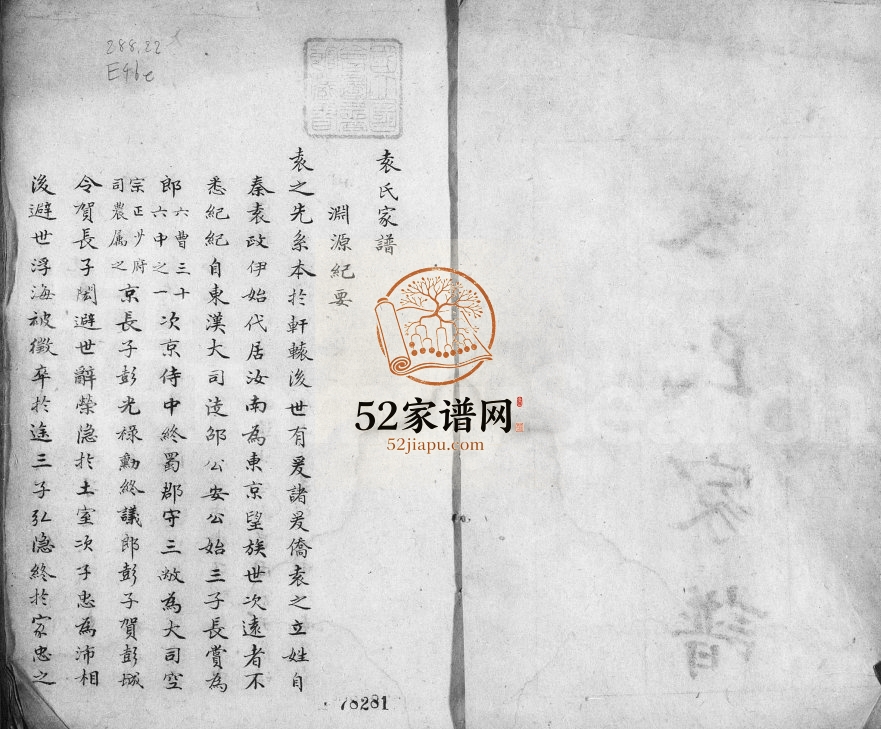 288.22
E46e
袁氏家譜
淵源紀要
袁之先系本於軒轅後世有爰諸爰僑袁之立姓自
秦袁政伊始代居汝南為東京望族世次遠者不
悉紀紀自東漢大司徒邵公安公始三子長賞為
郎六曹三十六中之一次京侍中終蜀郡守三敞為大司空
宗正少府司農属之京長子彭光禄勳終議郎彭子賀彭城
令賀長子閎避世辭榮隐於土室次子忠為沛相
後避世浮海被徵卒於途三子弘隐終於家忠之
78281
52家谱网
52jiapu.com
袁氏家譜